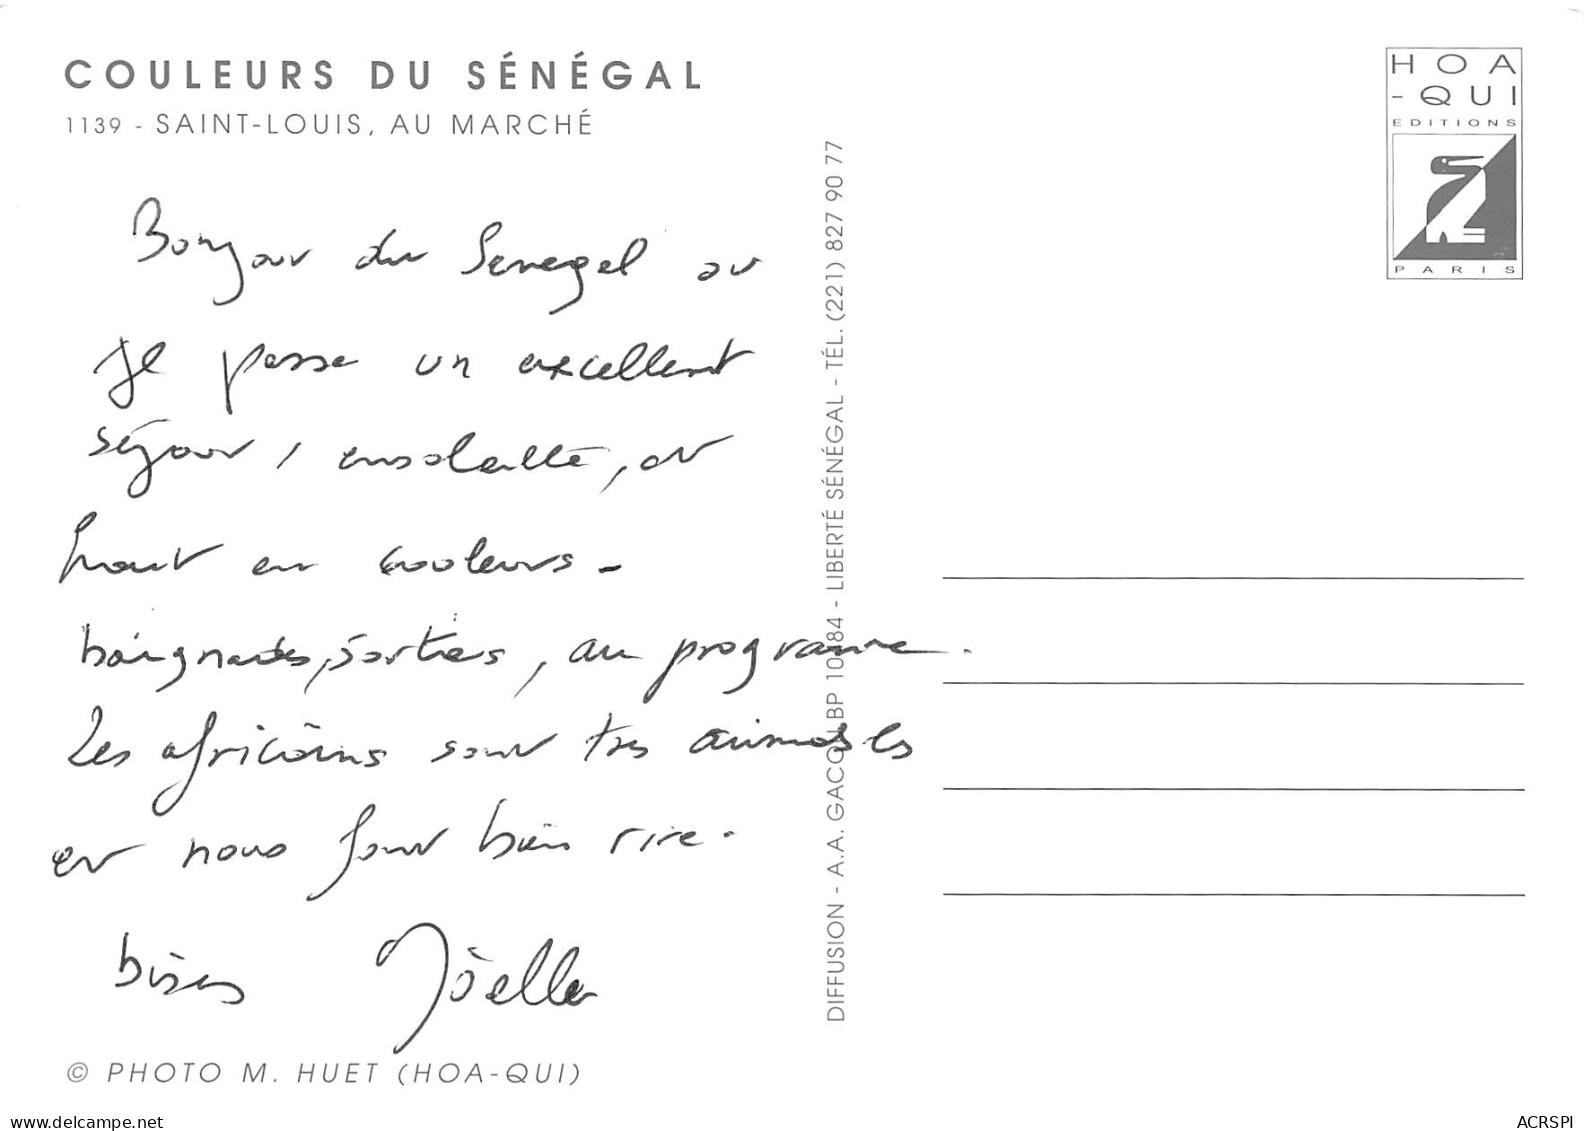 COULEURS DU SÉNÉGAL
1139 - SAINT-LOUIS, AU MARCHÉ
HOA
-QUI
EDITIONS
PARIS
Bonjour du Senegal où
je passe un excellent
séjour, ensoleillé, et
haut en couleurs.
baignades, sorties, au programme.
Les africains sont très aimables
et nous font bien rire.
bises Joëlle
© PHOTO M. HUET (HOA-QUI)
DIFFUSION - A.A. GACOU BP 10084 - LIBERTÉ SÉNÉGAL - TÉL. (221) 827 90 77
www.delcampe.net
ACRSPI